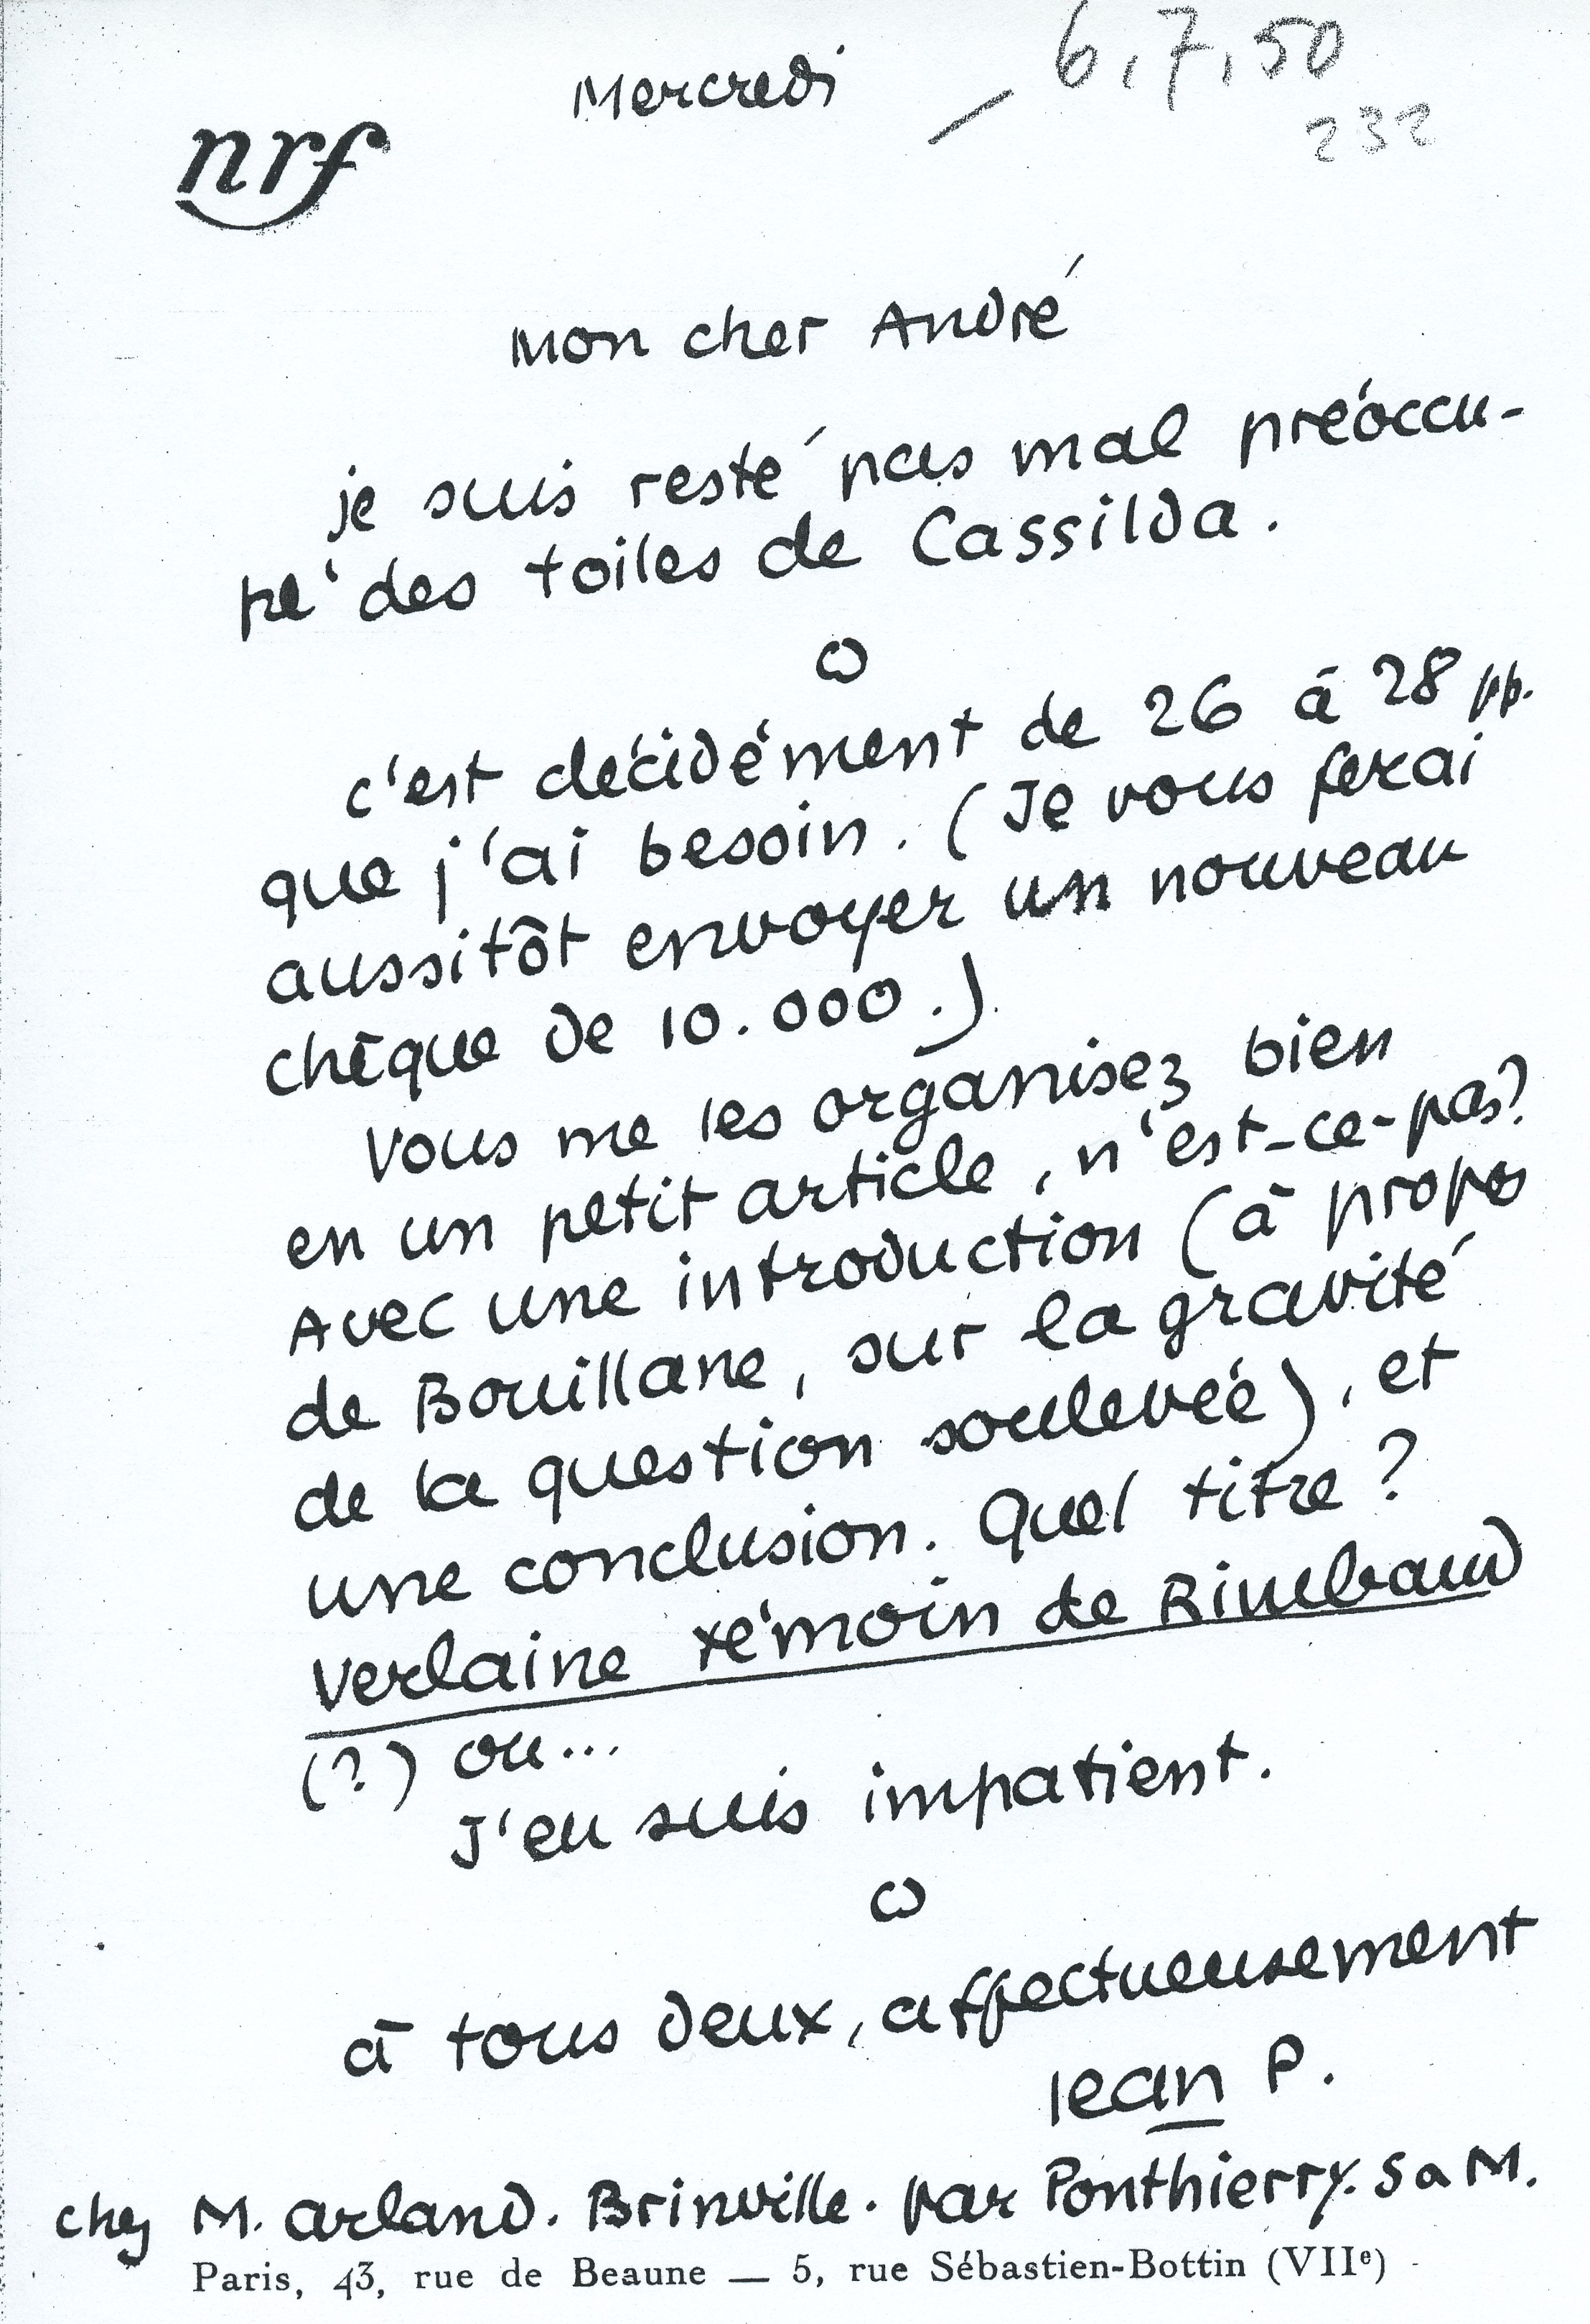 Mercredi — 6,7,50
232
nrf
Mon cher André
je suis resté pas mal préoccu-
pé des toiles de Cassilda.
c'est décidément de 26 à 28 pp.
que j'ai besoin. (Je vous ferai
aussitôt envoyer un nouveau
chèque de 10.000.).
Vous me les organisez bien
en un petit article, n'est-ce-pas?
Avec une introduction (à propos
de Bouillane, sur la gravité
de la question soulevée), et
une conclusion. Quel titre ?
Verlaine témoin de Rimbaud
(?) ou...
J'en suis impatient.
à tous deux, affectueusement
Jean P.
chez M. Arland. Brinville. par Ponthierry. S a M.
Paris, 43, rue de Beaune — 5, rue Sébastien-Bottin (VIIᵉ)